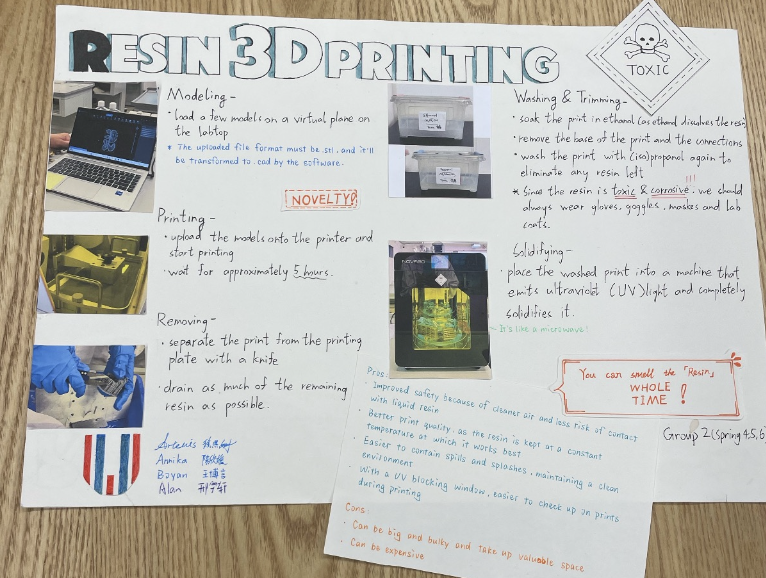 RESIN 3D PRINTING
TOXIC
Modeling -
· load a few models on a virtual plane on
the labtop
* The uploaded file format must be .stl, and it'll
be transformed to .cad by the software.
NOVELTY!
Printing -
· upload the models onto the printer and
start printing
· wait for approximately 5 hours.
Removing -
· separate the print from the printing
plate with a knife
· drain as much of the remaining
resin as possible.
Artemis
Annika
Boyan 王博言
Alan
Washing & Trimming -
· soak the print in ethanol (as ethanol dissolves the resin
· remove the base of the print and the connections
· wash the print with (iso)propanol again to
eliminate any resin left
* Since the resin is toxic & corrosive!!!, we should
always wear gloves, goggles, masks and lab
coats.
Solidifying -
· place the washed print into a machine that
emits ultraviolet (UV) light and completely
solidifies it.
It's like a microwave!
You can smell the「Resin」
WHOLE
TIME!
Group 2 (Spring 4,5,6
Pros:
· Improved safety because of cleaner air and less risk of contact
with liquid resin
· Better print quality, as the resin is kept at a constant
temperature at which it works best
· Easier to contain spills and splashes, maintaining a clean
environment
· With a UV blocking window, easier to check up on prints
during printing
Cons:
· Can be big and bulky and take up valuable space
· Can be expensive